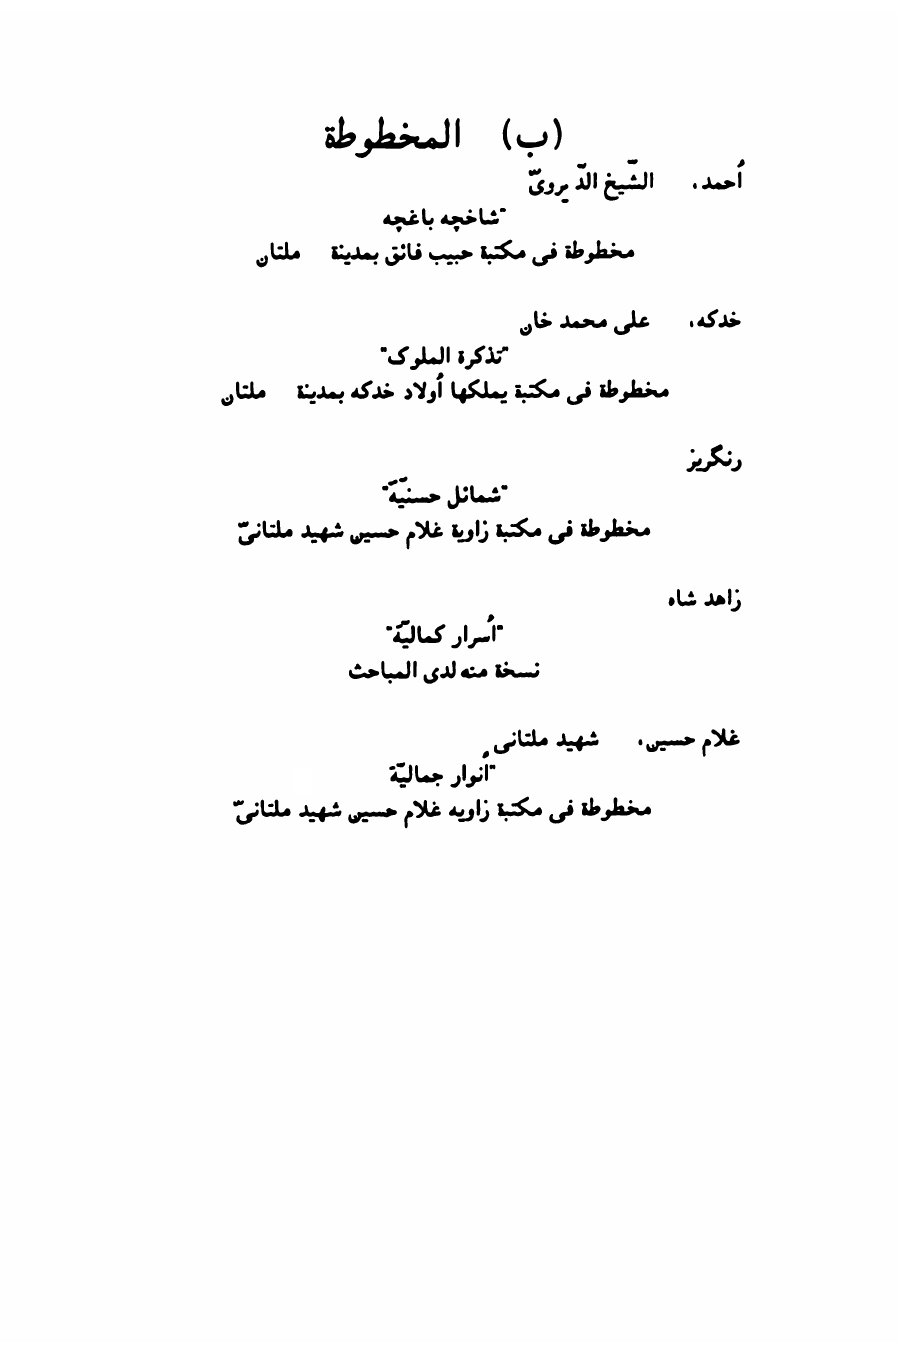 (ب) المخطوطة
أحمد، الشّيخ الدّيرویّ
"شاخچه باغچه
مخطوطة فی مكتبة حبيب فائق بمدينة ملتان
خدكه، علی محمد خان
"تذكرة الملوک"
مخطوطة فی مكتبة يملكها أولاد خدكه بمدينة ملتان
رنگریز
"شمائل حسنيّة"
مخطوطة فی مكتبة زاوية غلام حسين شهيد ملتانیّ
زاهد شاه
"أسرار كماليّة"
نسخة منه لدى المباحث
غلام حسين، شهيد ملتانی
"أنوار جماليّة
مخطوطة فی مكتبة زاويه غلام حسين شهيد ملتانیّ